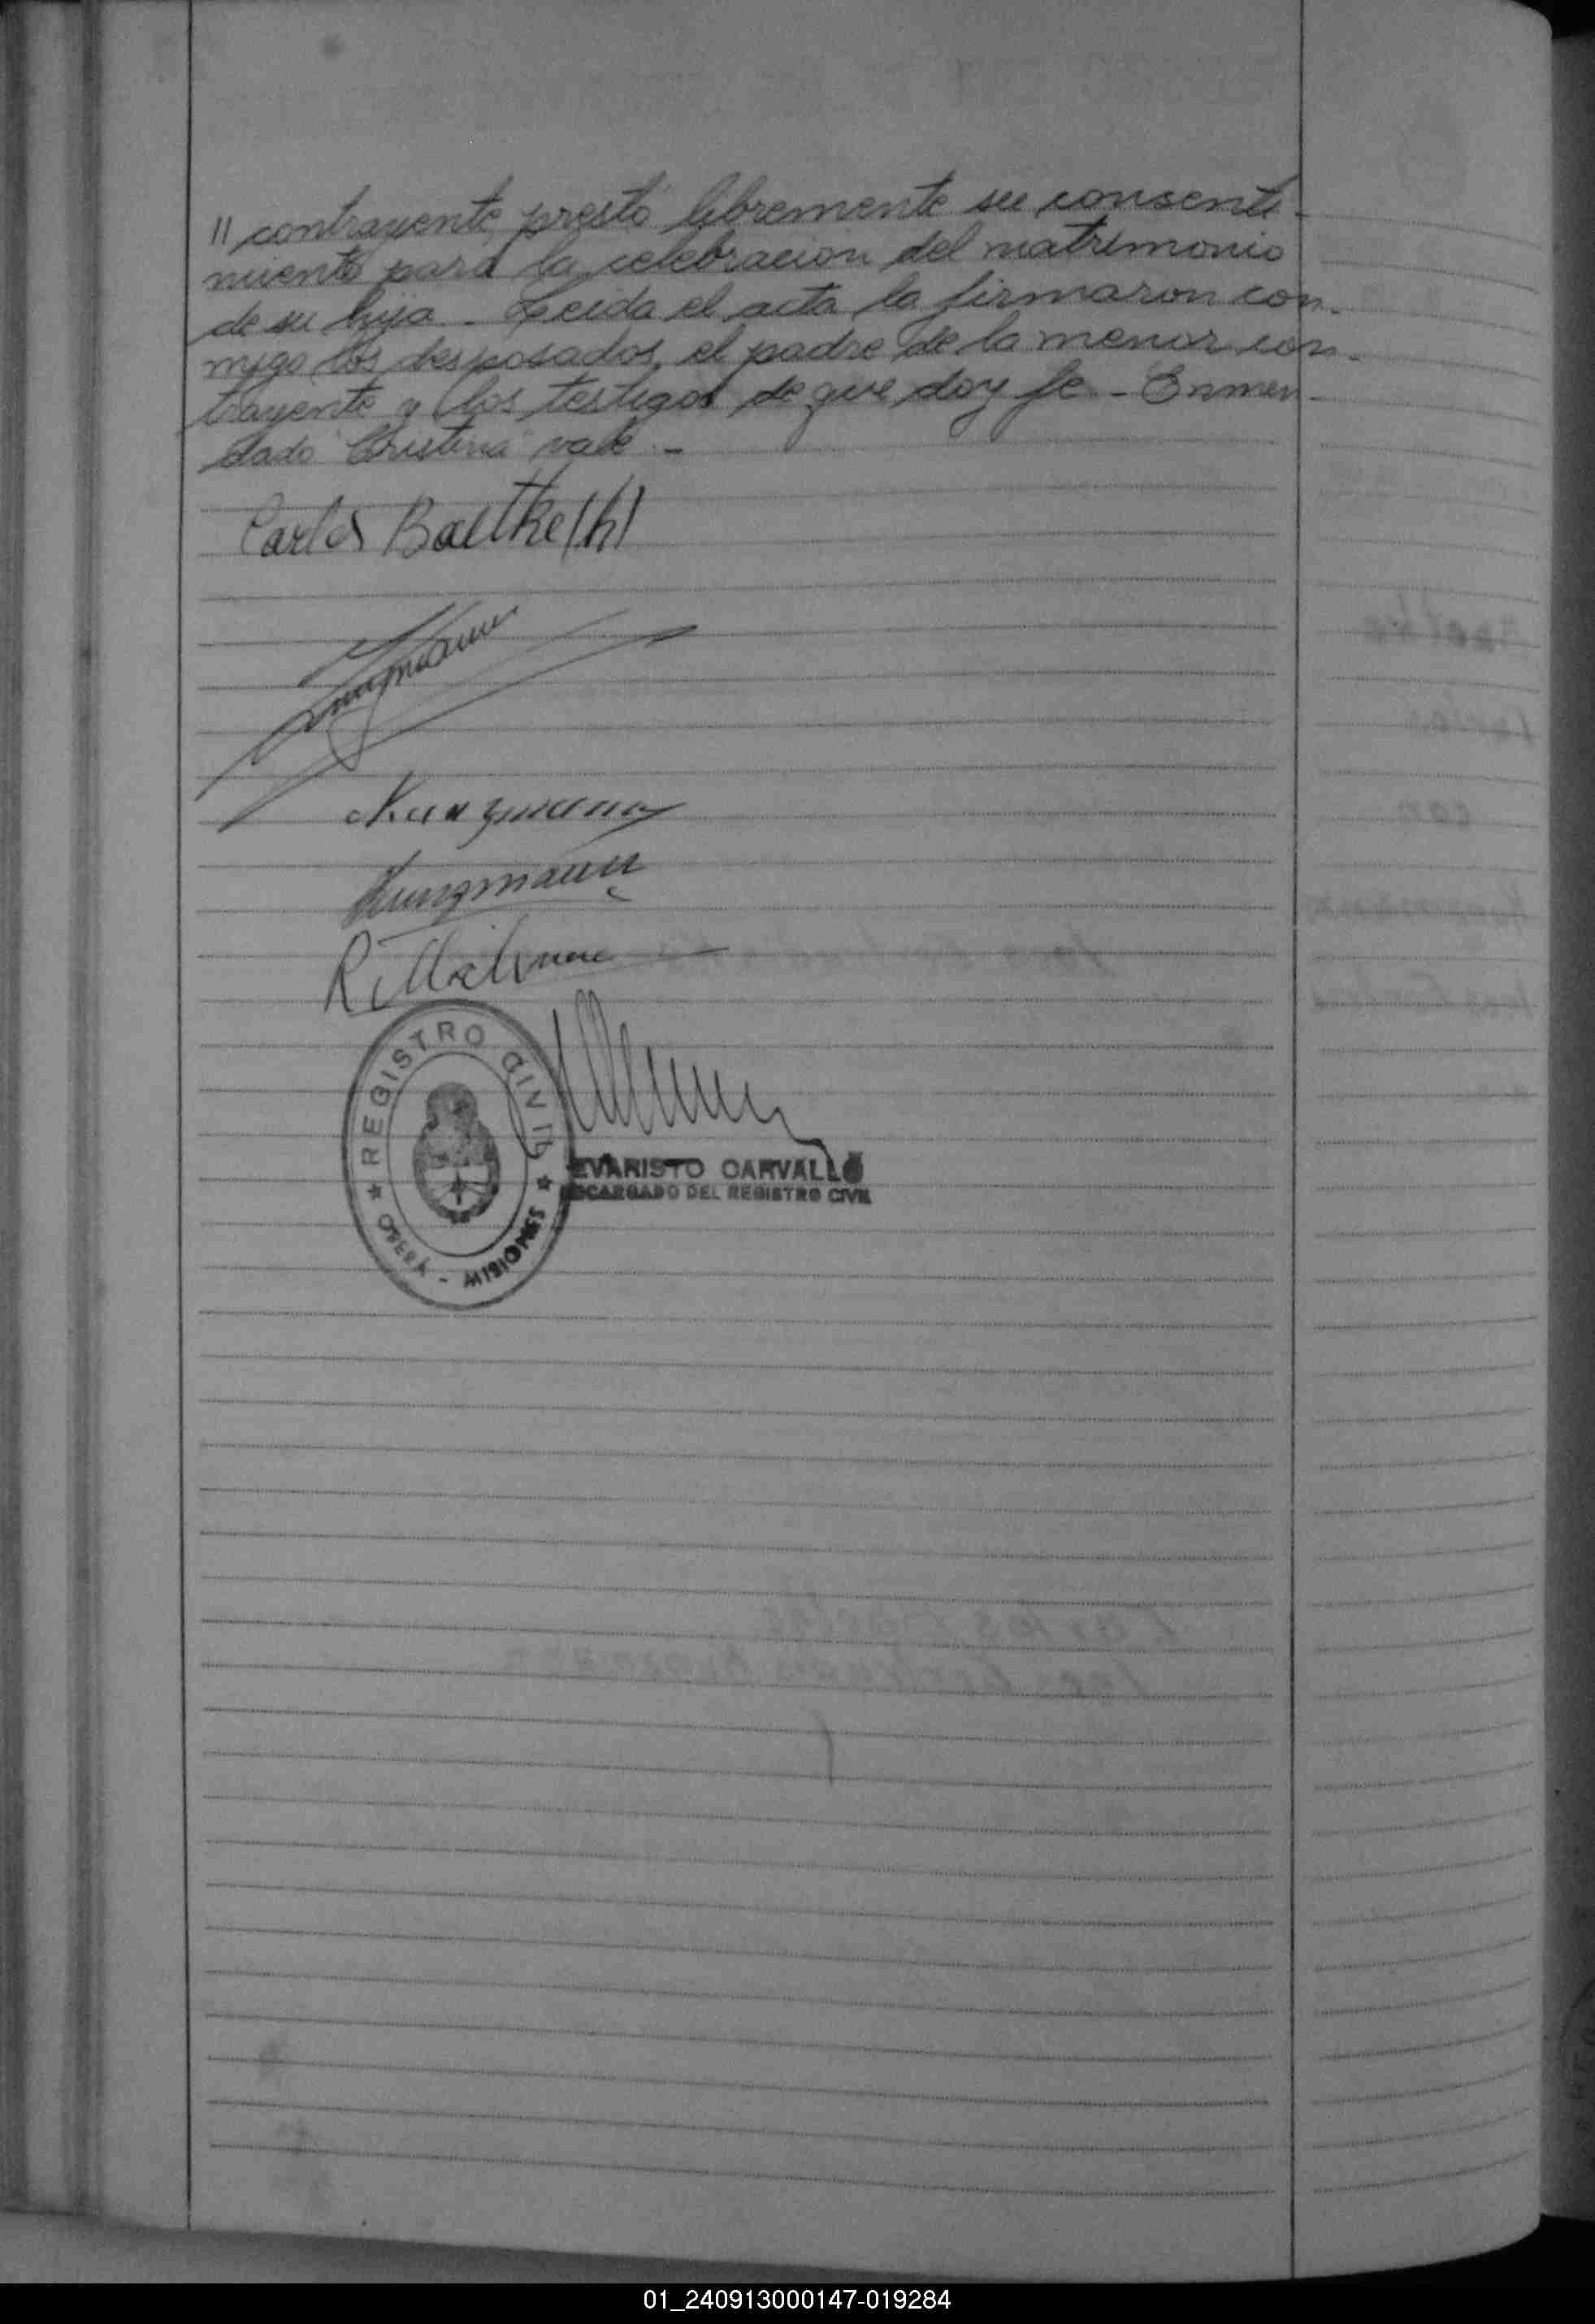 " contrayente, prestó libremente su consenti-
miento para la celebracion del matrimonio
de su hija. Leida el acta la firmaron con-
migo los desposados, el padre de la menor con-
trayente y los testigos de que doy fe - Enmen-
dado "Cristina" vale. -
Carlos Baethke (h)
Kunzmann
Kunzmann
REGISTRO CIVIL
OBERÁ - MISIONES
EVARISTO CARVALLO
ENCARGADO DEL REGISTRO CIVIL
01_240913000147-019284